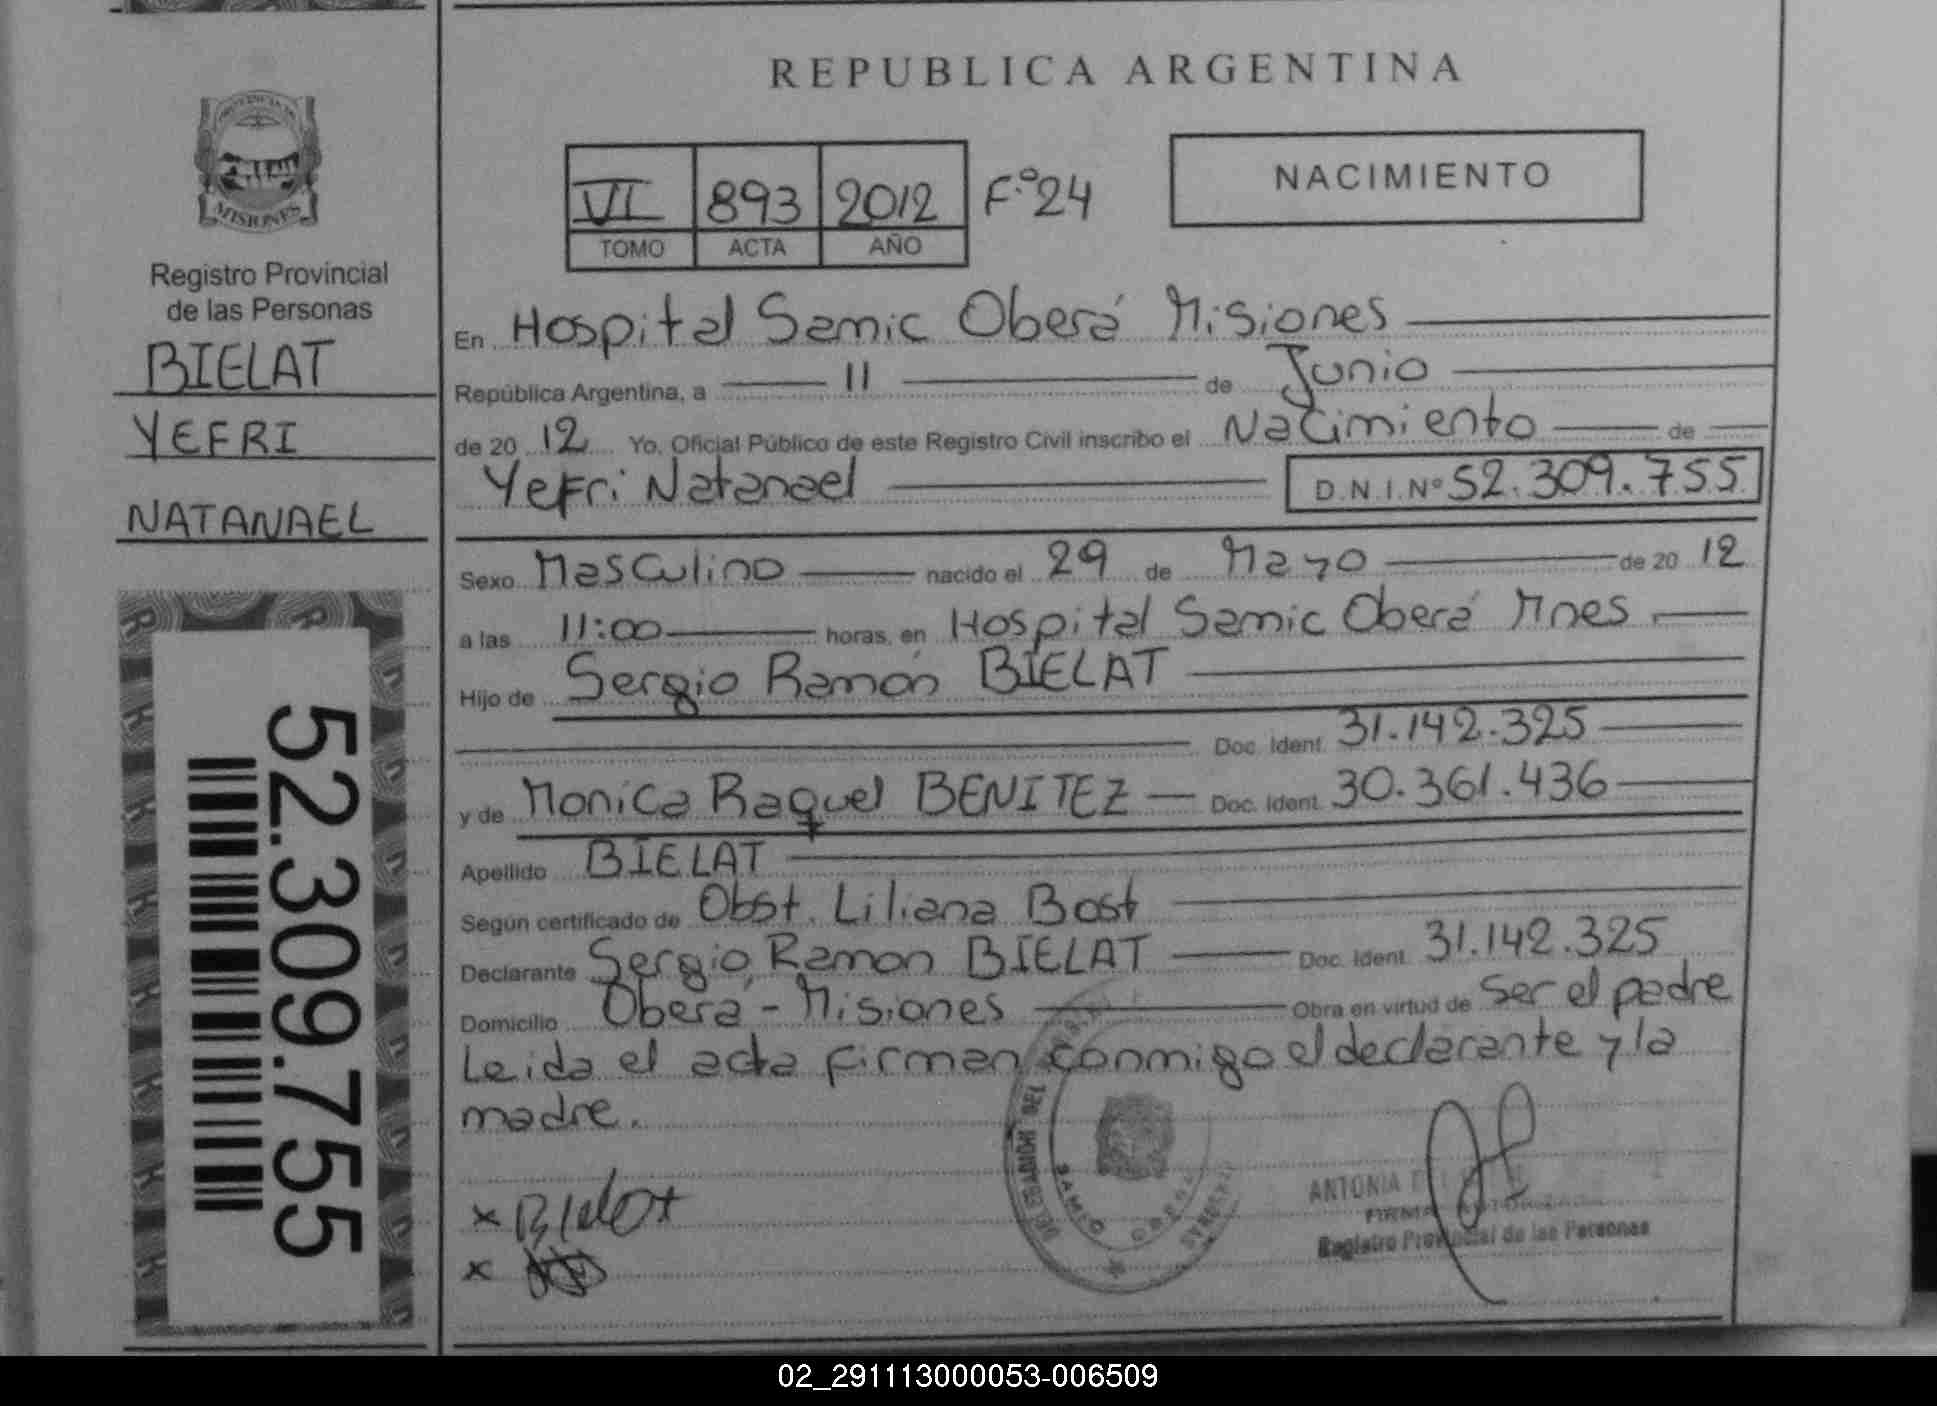 REPUBLICA ARGENTINA
PROVINCIA DE
MISIONES
Registro Provincial
de las Personas
BIELAT
YEFRI
NATANAEL
52.309.755
VI 893 2012 F.º24
TOMO ACTA AÑO
NACIMIENTO
En Hospital Samic Oberá Misiones
República Argentina, a 11 de Junio
de 20 12 Yo, Oficial Público de este Registro Civil inscribo el Nacimiento de
Yefri Natanael D.N.I.Nº 52.309.755
Sexo Masculino nacido el 29 de Mayo de 20 12
a las 11:00 horas, en Hospital Samic Oberá Mnes
Hijo de Sergio Ramón BIELAT
Doc. Ident. 31.142.325
y de Monica Raquel BENITEZ Doc. Ident. 30.361.436
Apellido BIELAT
Según certificado de Obst. Liliana Bost
Declarante Sergio Ramon BIELAT Doc. Ident. 31.142.325
Domicilio Oberá - Misiones Obra en virtud de Ser el padre
Leida el acta firman conmigo el declarante y la
madre.
x Bielat
x
ANTONIA
FIRMA
Registro Provincial de las Personas
02_291113000053-006509